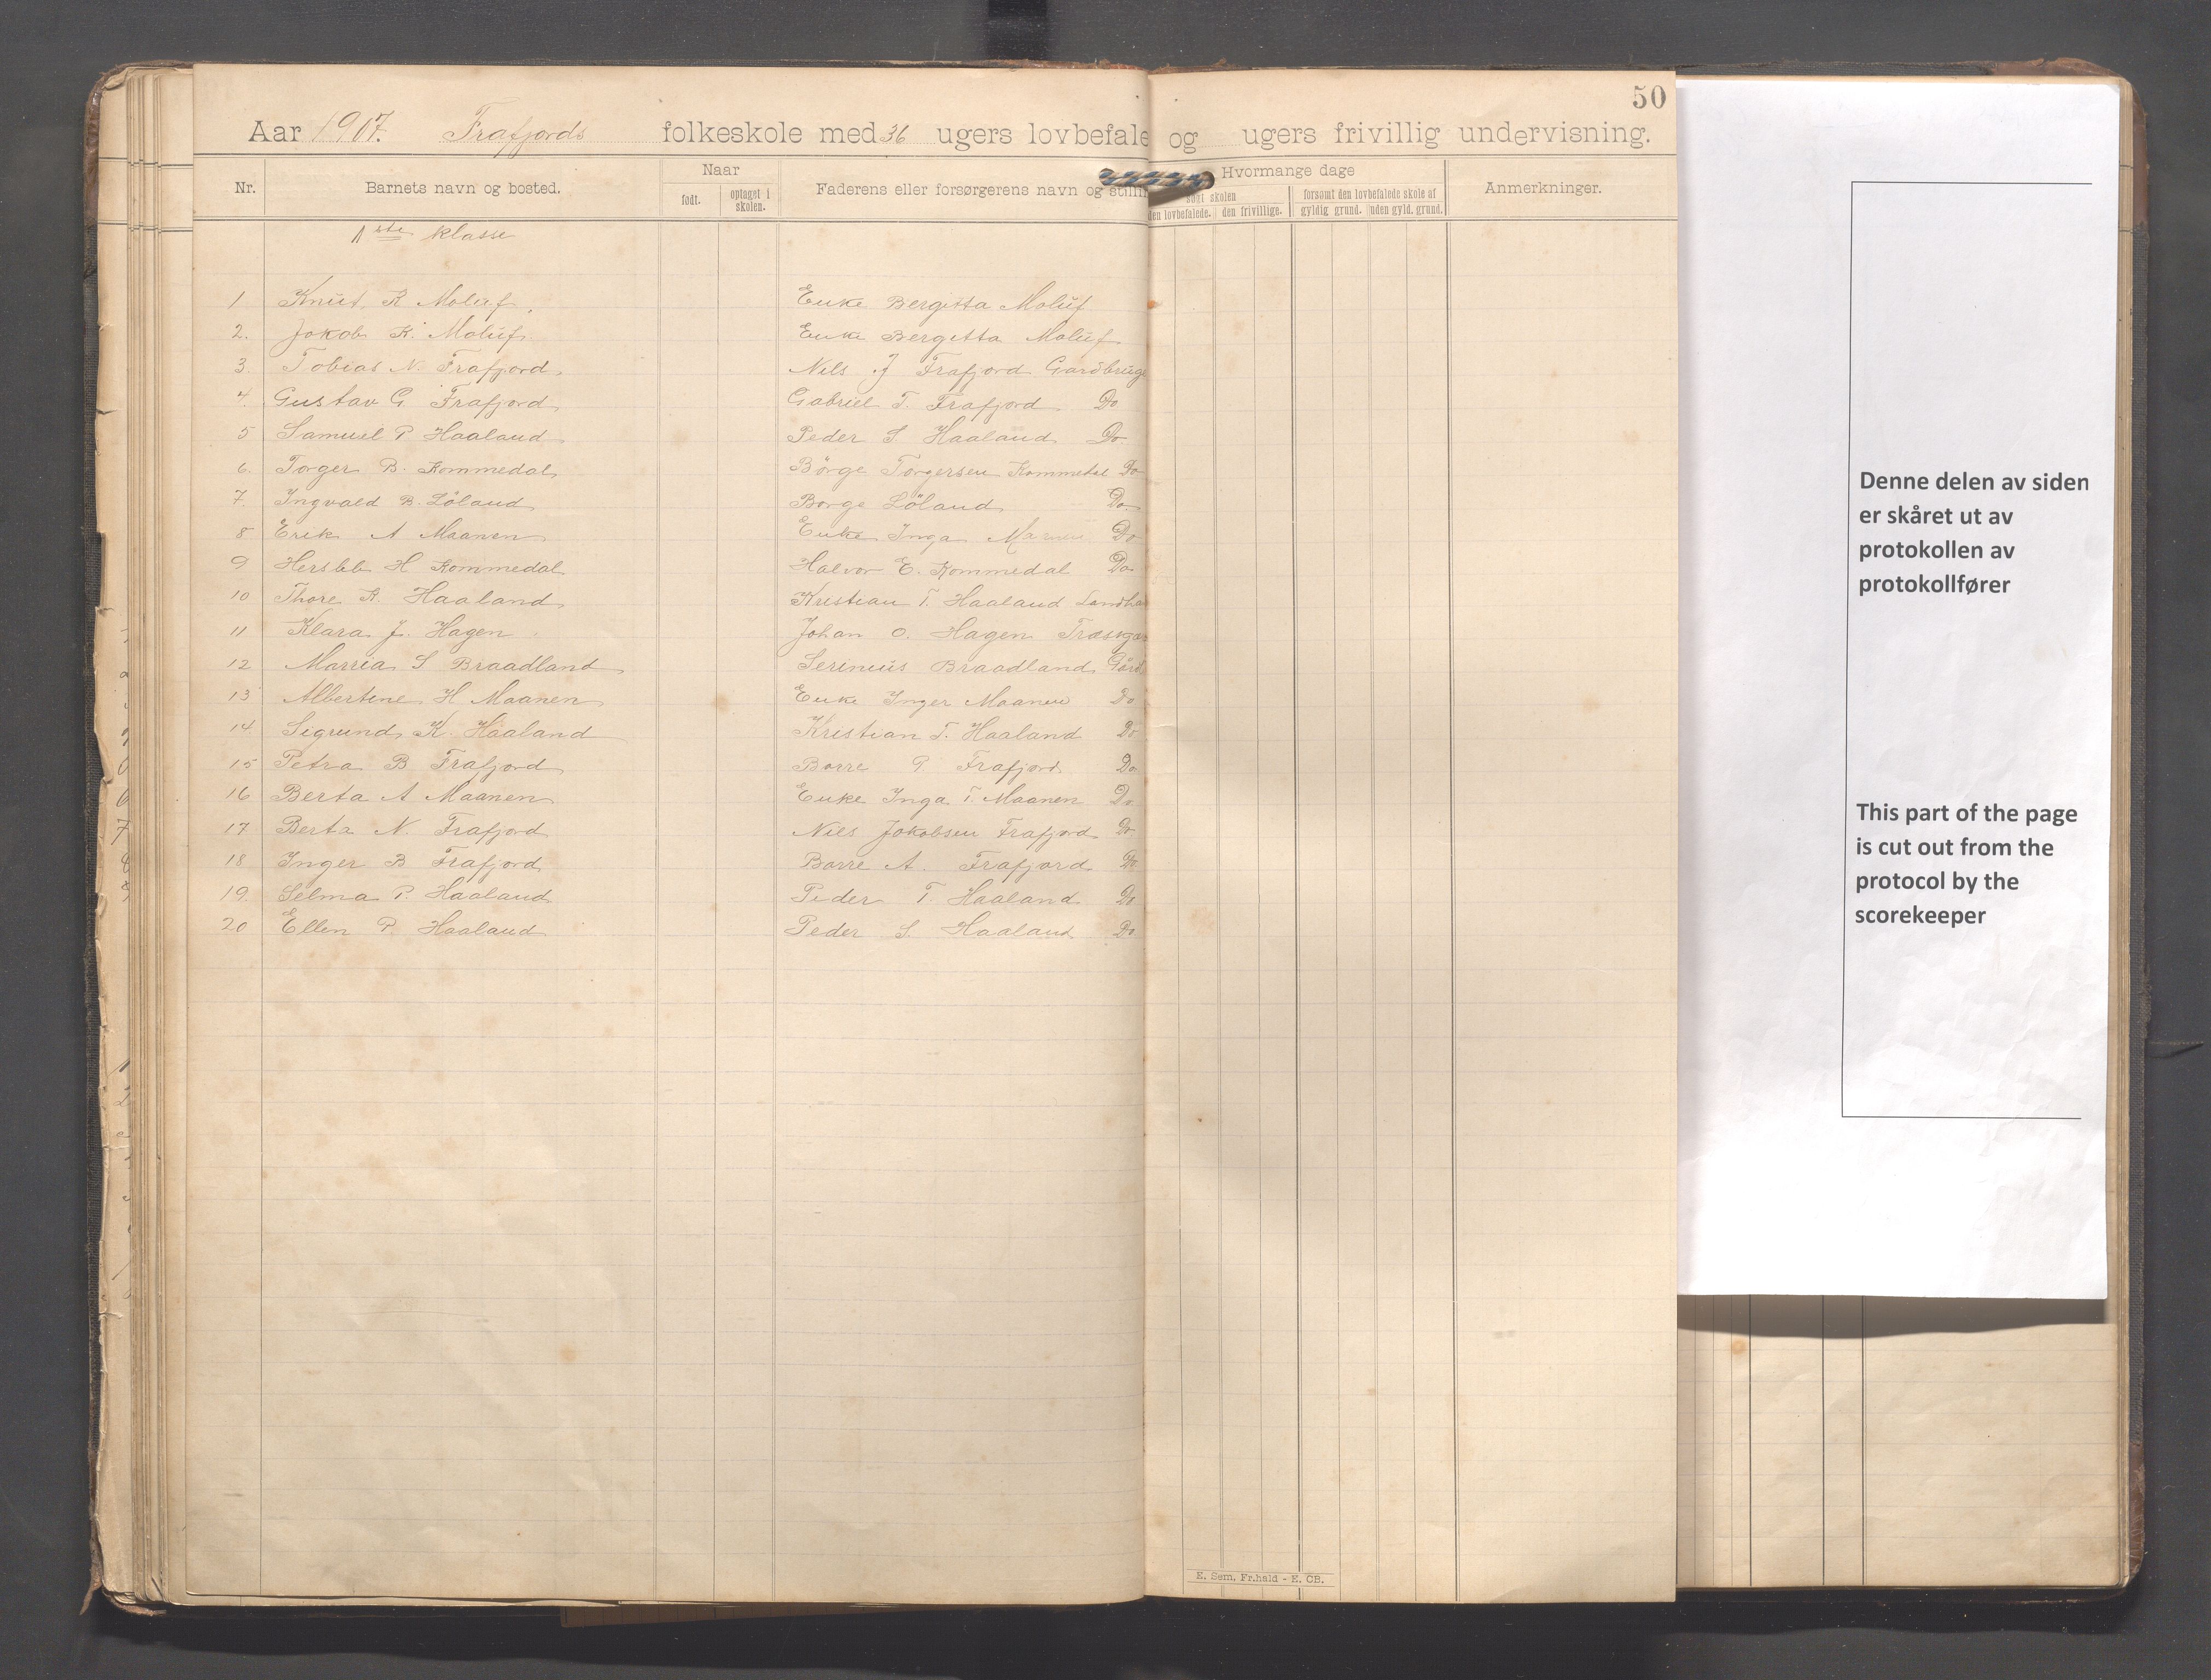 50
Aar 1907. Frafjords folkeskole med 36 ugers lovbefale og ugers frivillig undervisning.
Nr. Barnets navn og bosted. Naar Faderens eller forsørgerens navn og stillin Hvormange dage Anmerkninger.
født. optaget i skolen. søgt skolen forsømt den lovbefalede skole af
den lovbefalede. den frivillige. gyldig grund. uden gyld. grund.
1ste klasse
1 Knut K Moluf. Enke Bergitta Moluf
2. Jokob K. Moluf. Enke Bergitta Moluf
3. Tobias N. Frafjord. Nils J Frafjord Gardbruge
4. Gustav G. Frafjord. Gabriel T. Frafjord Do
5 Samuel P Haaland Peder S. Haaland Do
6. Torger B. Kommedal Børge Torgersen Kommedal Do
7. Ingvald B. Löland Borge Löland Do
8 Erik A Maanen Enke Inga Do
9 H Kommedal Halvor E. Kommedal Do
10 Thore K. Haaland Kristian T. Haaland Landha
11 Klara J. Hagen Johan O. Hagen
12 Marria S Braadland Serinius Braadland
13 Albertine H Maanen Enke Inger Maanen Do
14 Sigrund K. Haaland Kristian T. Haaland Do
15 Petra B Frafjord Borre P. Frafjord Do
16 Berta A Maanen Enke Inga T. Maanen Do
17 Berta N. Frafjord Niels Jokobsen Frafjord Do
18 Inger B Frafjord Borre A. Frafjord Do
19. Selma P. Haaland Peder T. Haaland Do
20 Ellen P. Haaland Peder S. Haaland Do
E. Sem, Fr.hald - E. CB.
Denne delen av siden
er skåret ut av
protokollen av
protokollfører
This part of the page
is cut out from the
protocol by the
scorekeeper